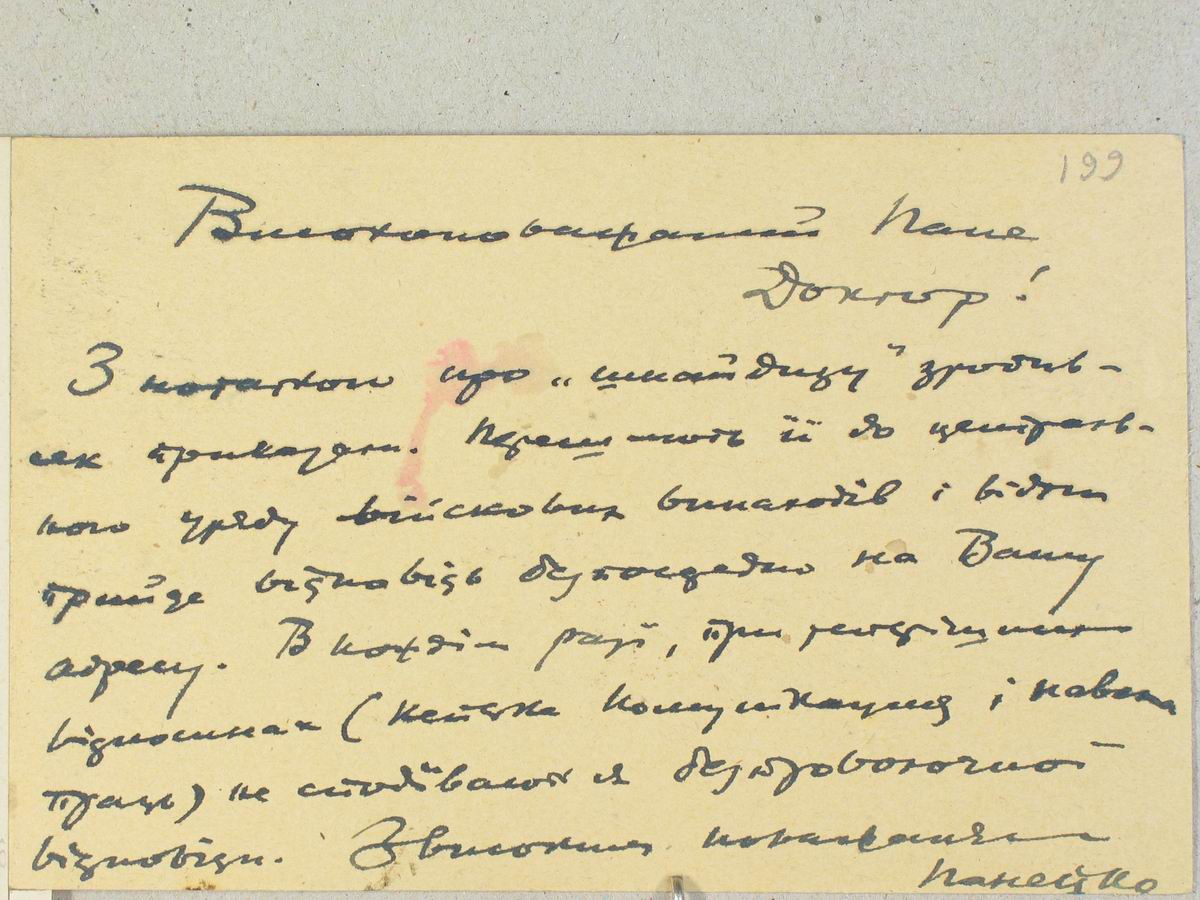 199
Високоповажаний Пане
Доктор!
З нотаткою про „шкайдизу" зробив-
сек приказани. Переш лють її до централь-
ного уряду війскових винаходів і відти
прийде відповідь безпосередно на Вашу
адресу. В кождім разі, при теперішних
відносинах ( комунікация і навала
праць) не сподіваюся безпроволочної
відповіди. З високим поважаням
Панейко